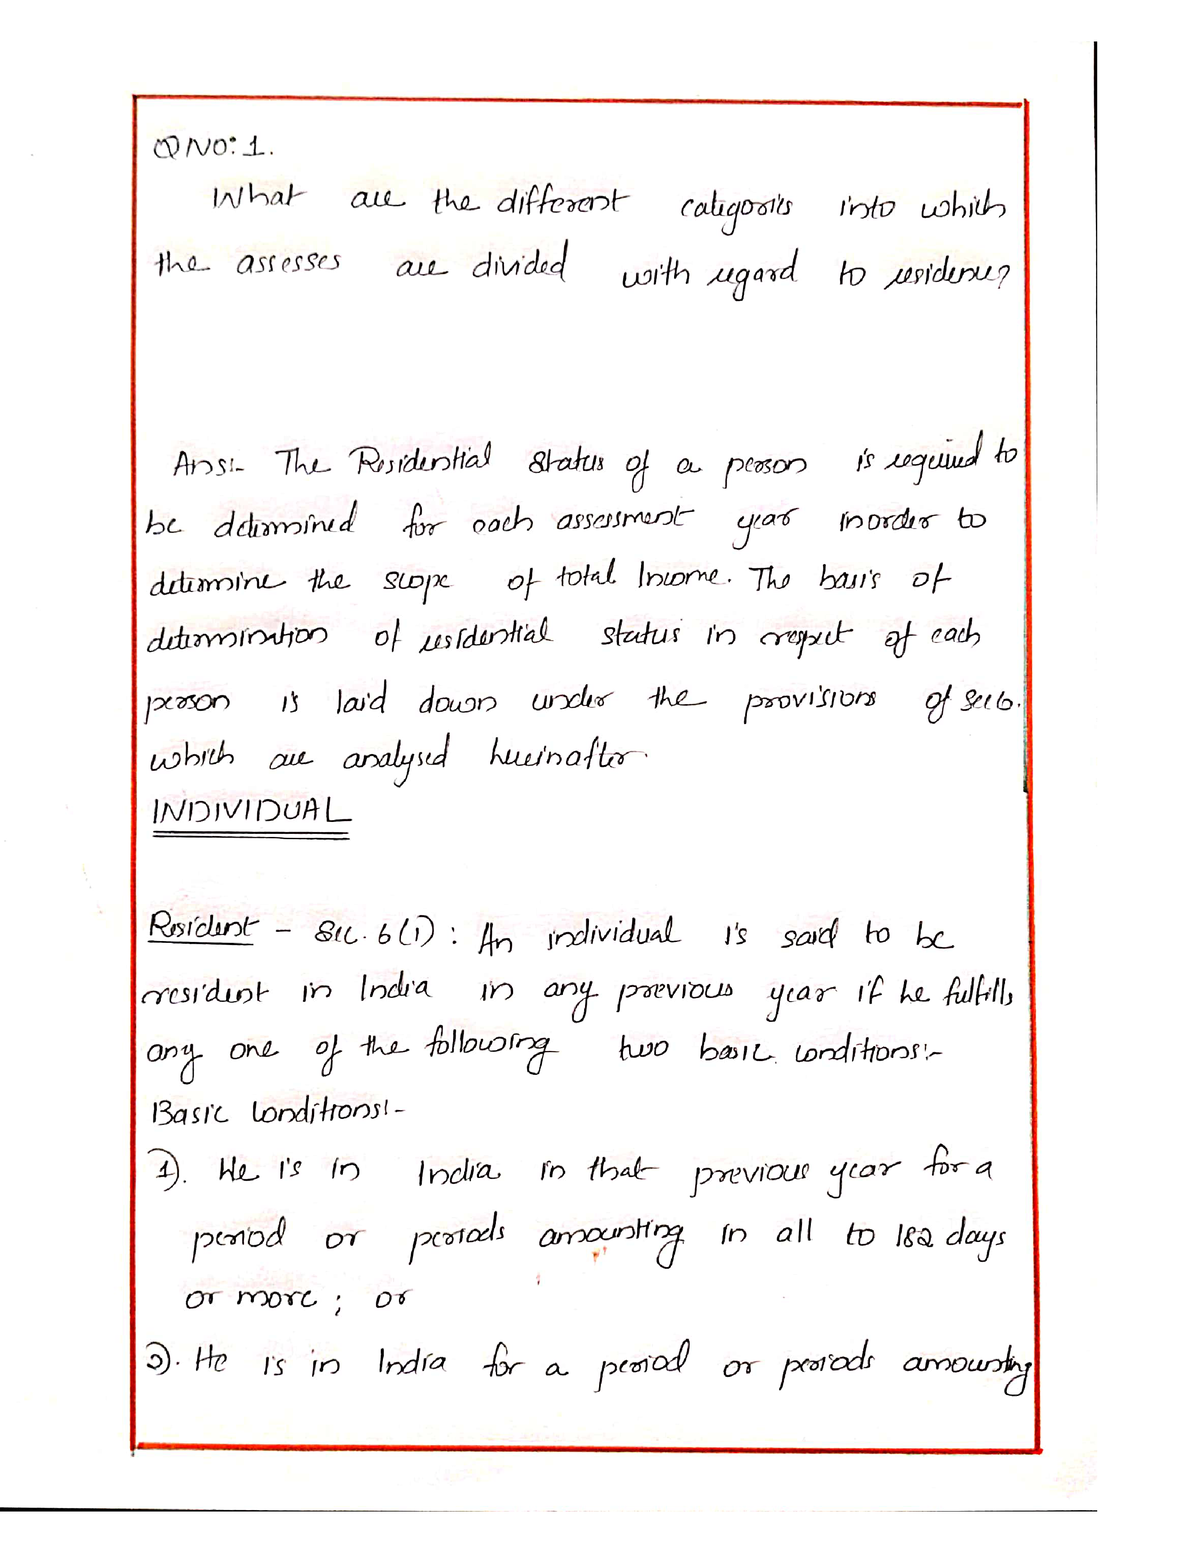 Q NO: 1.
What are the different categories into which
the assesses are divided with regard to residence?
Ans:- The Residential Status of a person is required to
be determined for each assessment year inorder to
determine the scope of total Income. The basis of
determination of residential status in respect of each
person is laid down under the provisions of Sec 6.
which are analysed hereinafter.
INDIVIDUAL
Resident - Sec. 6(1): An individual is said to be
resident in India in any previous year if he fulfills
any one of the following two basic conditions:-
Basic Conditions:-
1). He is in India in that previous year for a
period or periods amounting in all to 182 days
or more; or
2). He is in India for a period or periods amounting